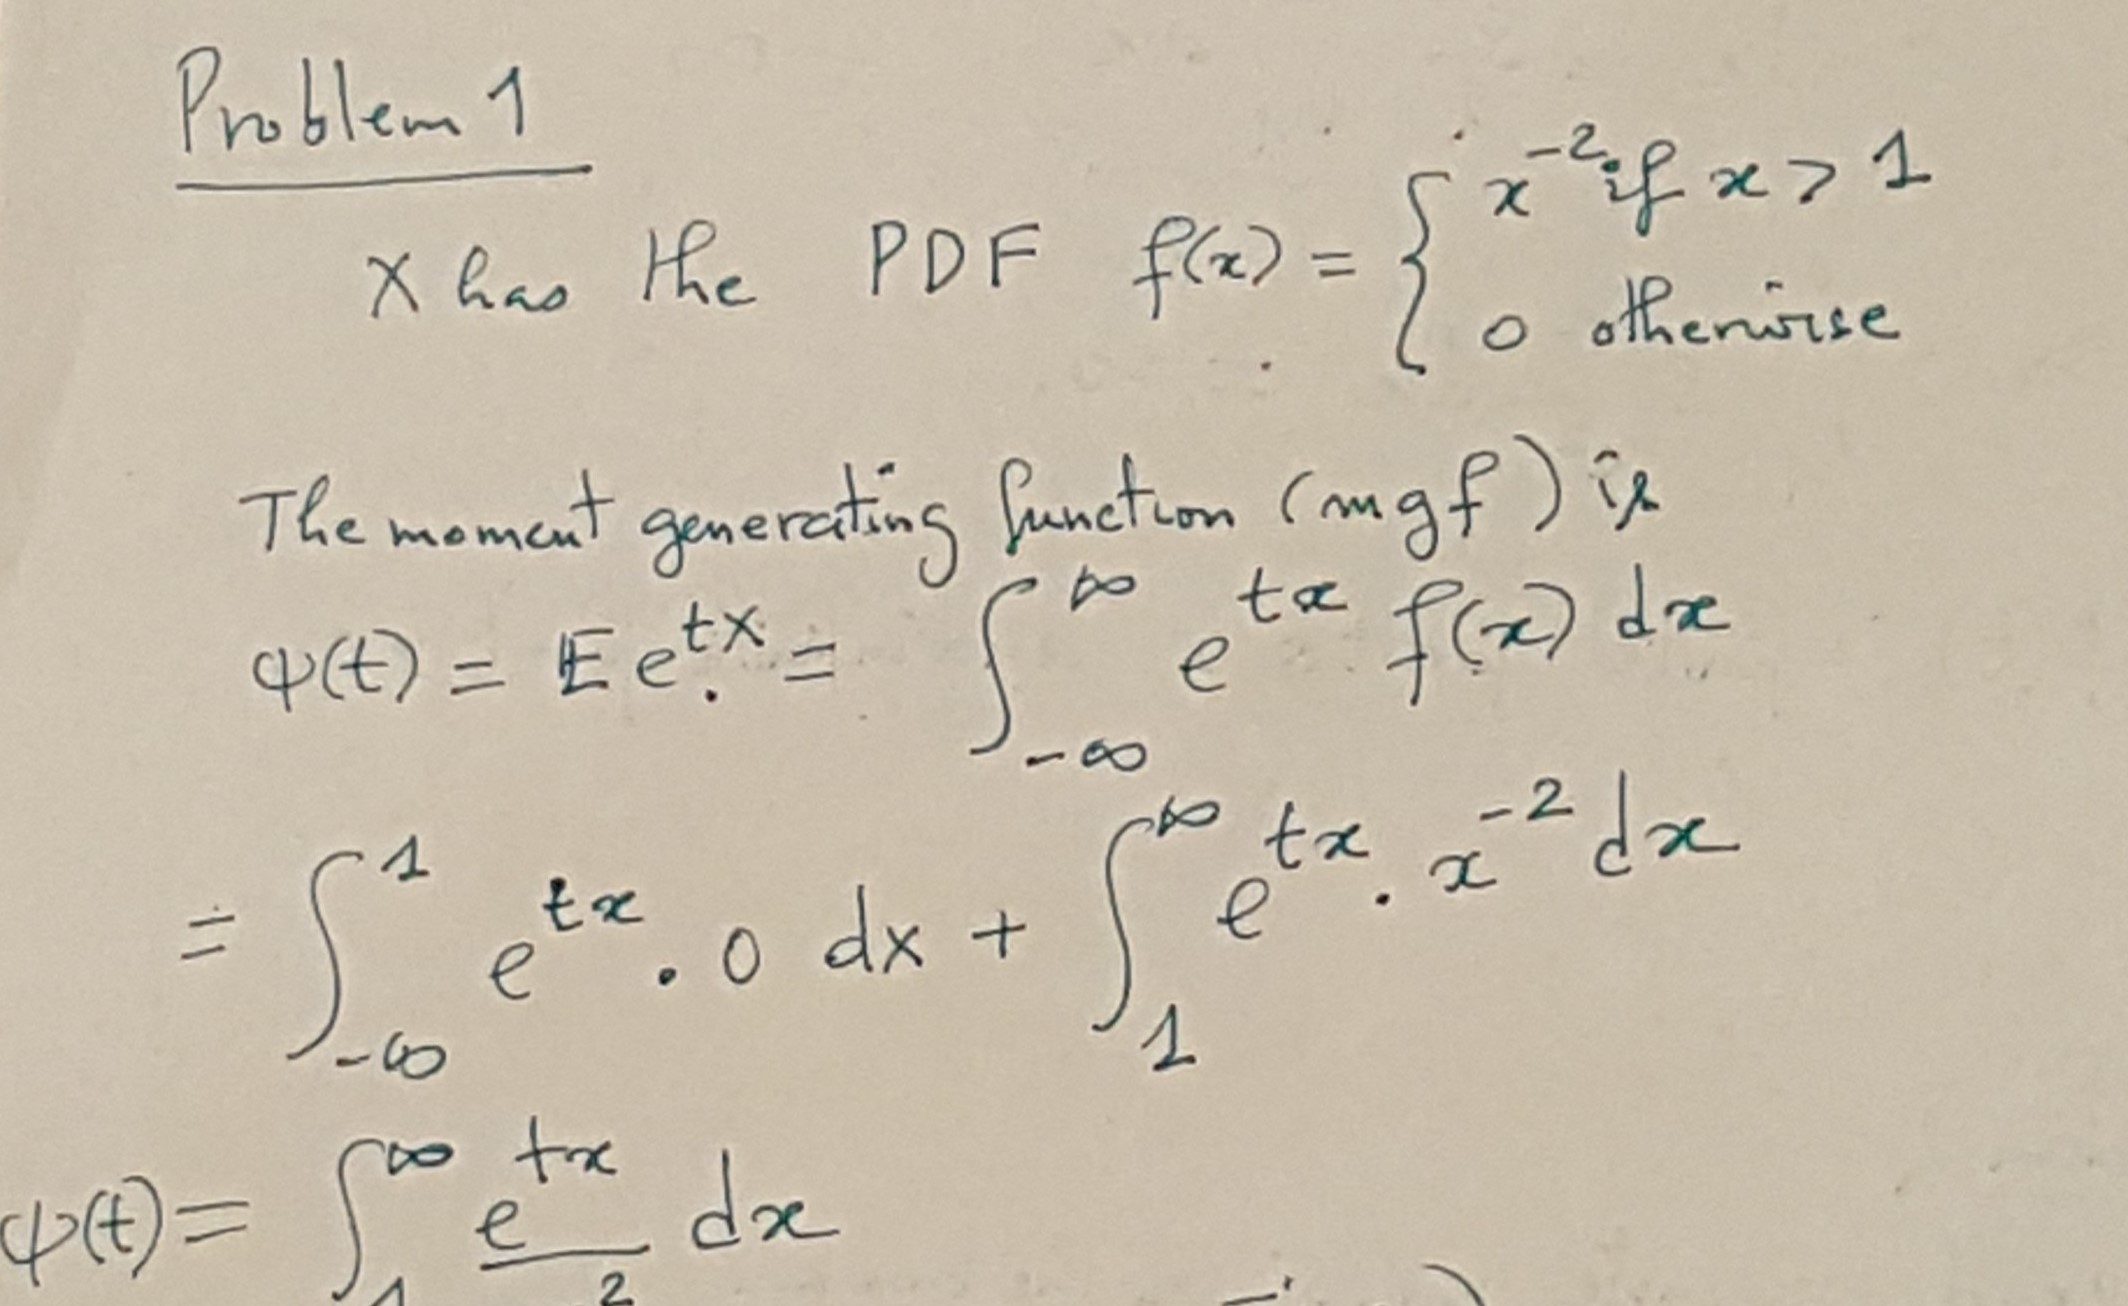 Problem 1
X has the PDF f(x) = { x⁻² if x > 1
0 otherwise
The moment generating function (mgf) is
φ(t) = E e^{tX} = ∫_{-∞}^{∞} e^{tx} f(x) dx
= ∫_{-∞}^{1} e^{tx} . 0 dx + ∫_{1}^{∞} e^{tx} . x^{-2} dx
φ(t) = ∫_{1}^{∞} e^{tx} dx
2